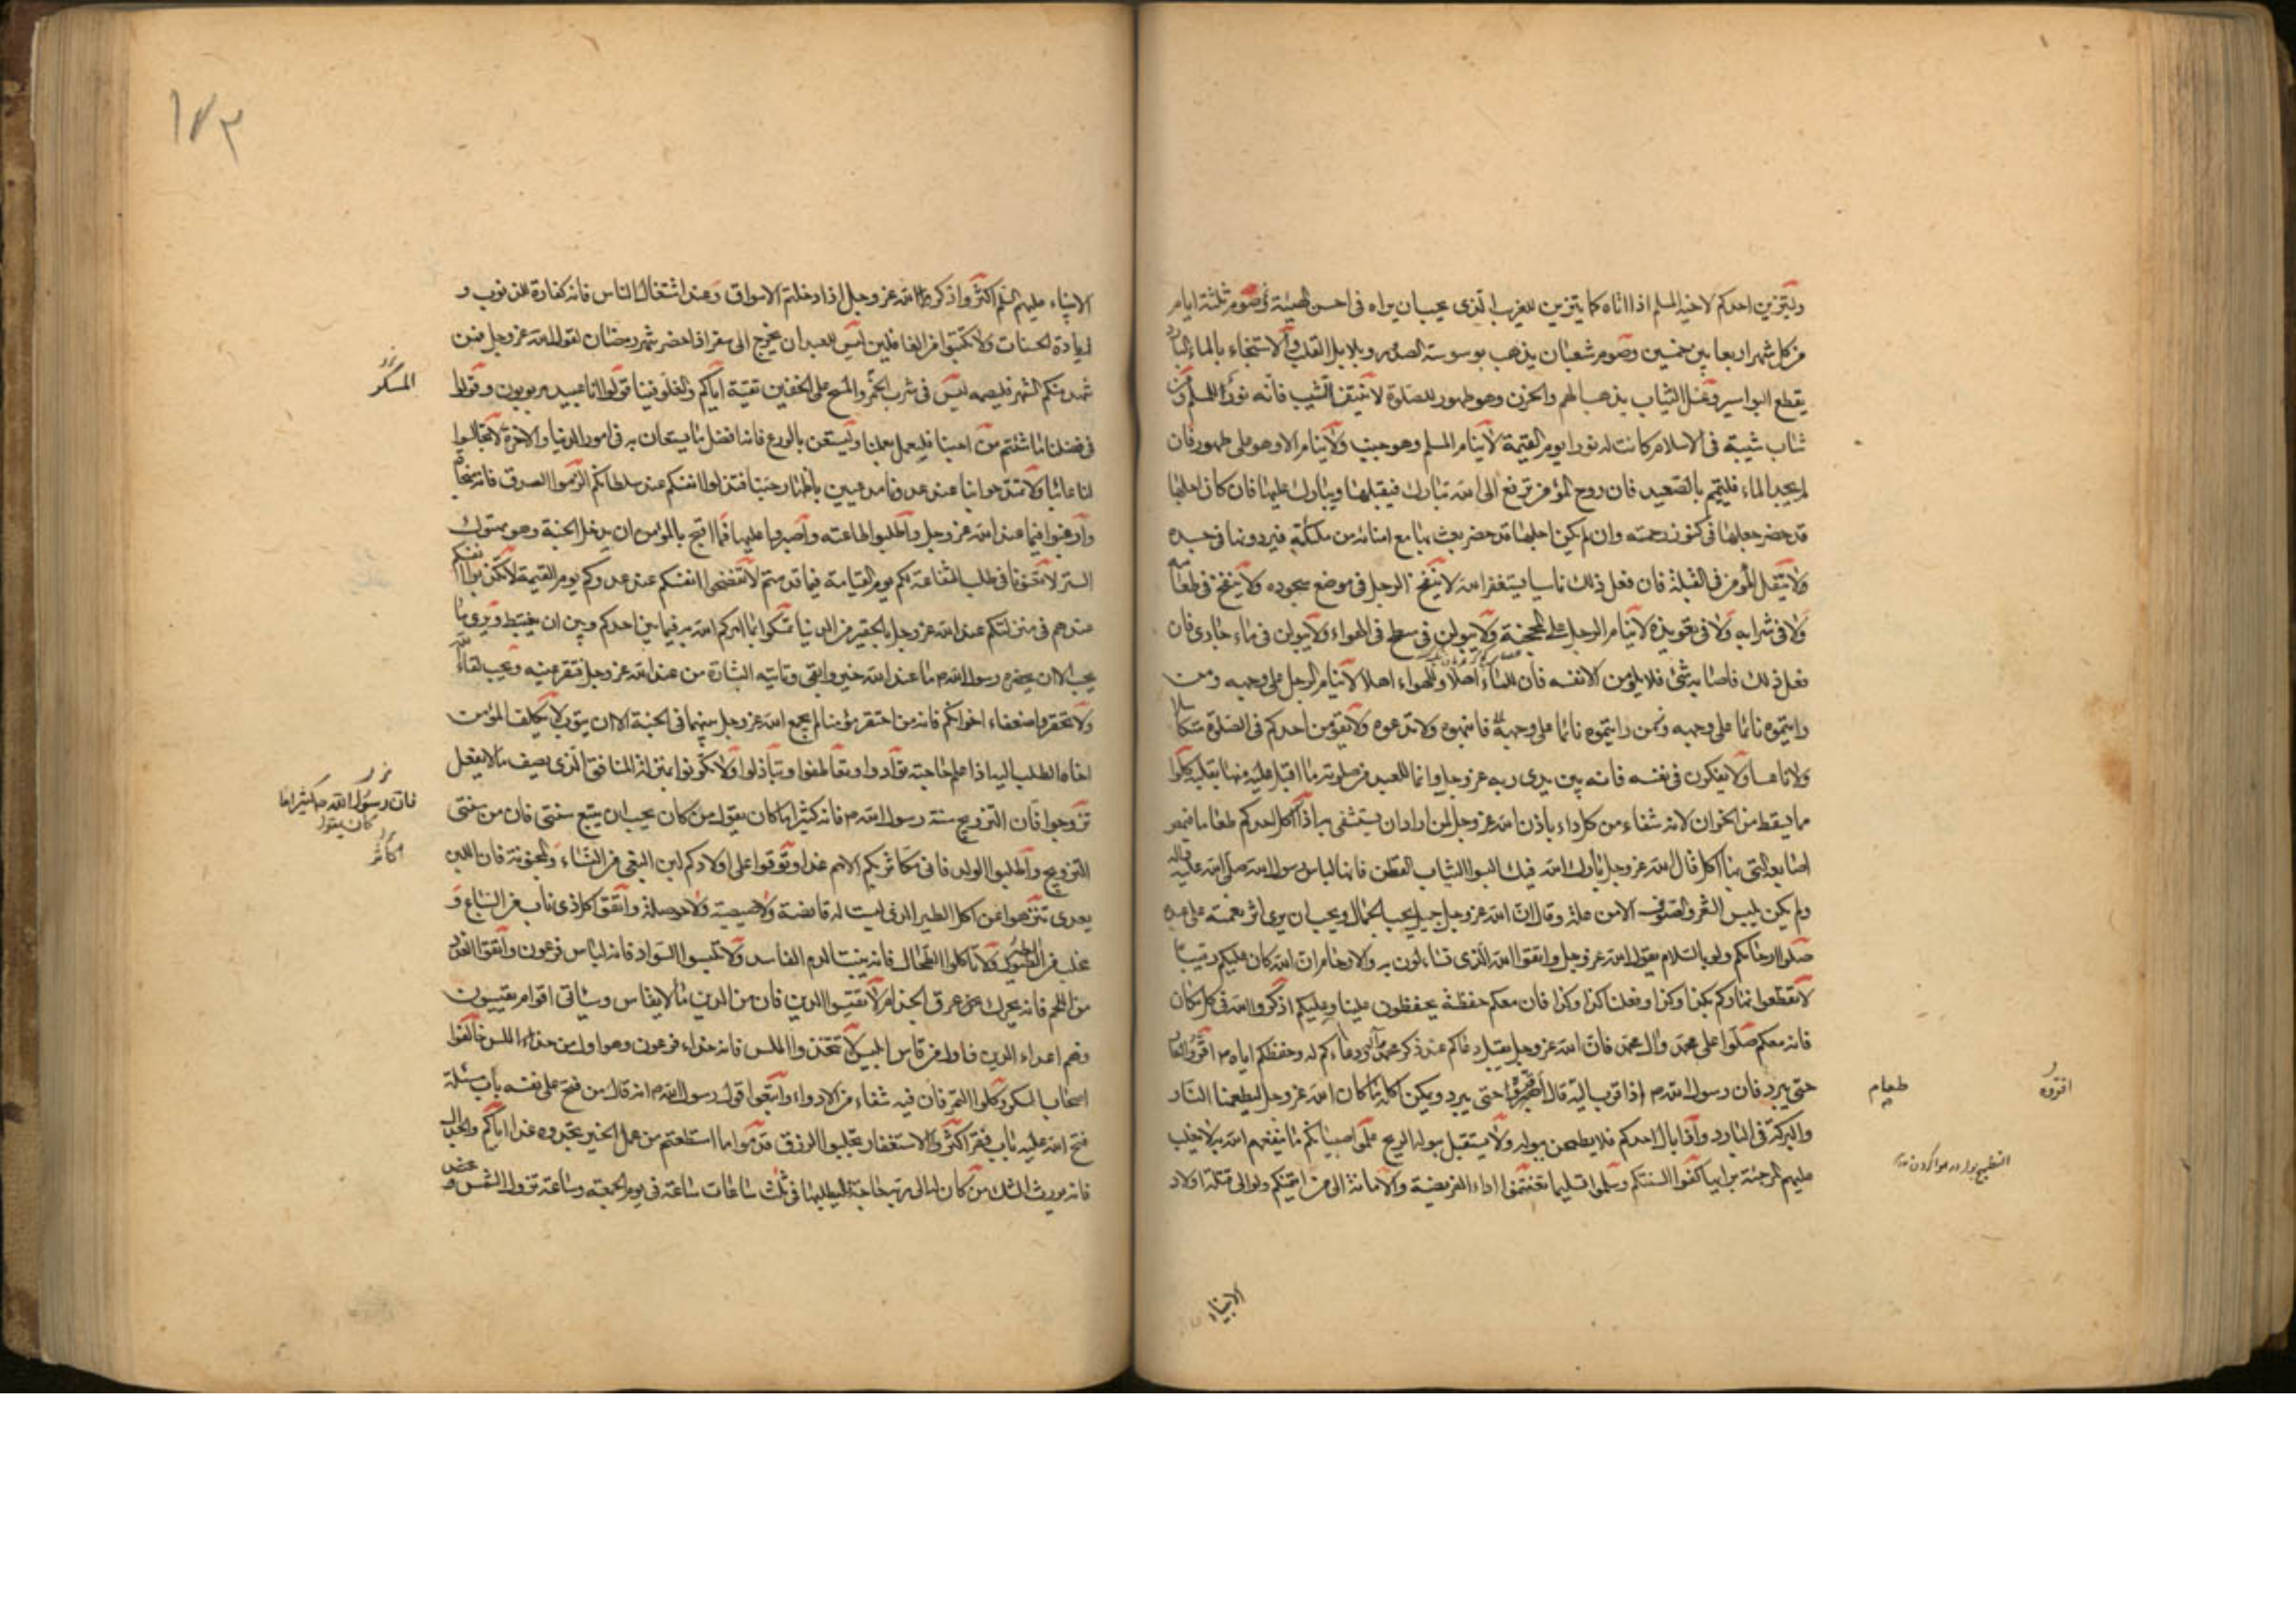 وليتزين احدكم لاخيه المسلم اذا اتاه كما يتزين للغريب الذى يحب ان يراه فى احسن الهيئة وصوم ثلثة ايام
من كل شهر اربعا بين خمسين وصوم شعبان يذهب بوسوسة الصدر وبلابل القلب والاستنجاء بالماء البارد
يقطع البواسير وغسل الثياب يذهب الهم والحزن وهو طهور للصلوة لا تنتفوا الشيب فانه نور المسلم ومن
شاب شيبة فى الاسلام كانت له نورا يوم القيمة لا ينام المسلم وهو جنب ولا ينام الا وهو على طهور فان
لم يجد الماء فليتيمم بالصعيد فان روح المؤمن ترفع الى الله تبارك فيقبلها ويبارك عليها فان كان اجلها
قد حضر جعلها فى كنوز رحمته وان لم يكن اجلها قد حضر بعث بها مع امنائه من ملئكته فيردونها فى جسده
ولا يتفل المؤمن فى القبلة فان فعل ذلك ناسيا يستغفر الله لا ينفخ الرجل فى موضع سجوده ولا ينفخ فى طعامه
ولا فى شرابه ولا فى تعويذه لا ينام الرجل على المحجة ولا يبولن فى سطح فى الهواء ولا يبولن فى ماء جارى فان
فعل ذلك فاصابه شئ فلا يلومن الا نفسه فان للماء اهلا وللهواء اهلا لا ينام الرجل على وجهه ومن
رايتموه نائما على وجهه فانبهوه ولا تدعوه ولا يقومن احدكم فى الصلوة متكاسلا
ولا ناعسا ولا يفكرن فى نفسه فانه بين يدى ربه عز وجل وانما للعبد من صلوته ما اقبل عليه منها بقلبه كلوا
ما يسقط من الخوان لانه شفاء من كل داء باذن الله عز وجل لمن اراد ان يستشفى به اذا اكل احدكم طعاما فمص
اصابعه التى بها اكل قال الله عز وجل بارك الله فيك البسوا الثياب القطن فانها لباس رسول الله صلى الله عليه واله
ولم يكن يلبس الشعر والصوف الا من علة وقال ان الله عز وجل جميل يحب الجمال ويحب ان يرى اثر نعمته على عبده
صلوا ارحامكم ولو بالسلام يقول الله عز وجل واتقوا الله الذى تساءلون به والارحام ان الله كان عليكم رقيبا
لا تقطعوا نهاركم بكذا وكذا وفعلنا كذا وكذا فان معكم حفظة يحفظون علينا وعليكم اذكروا الله فى كل مكان
فانه معكم صلوا على محمد وال محمد فان الله عز وجل يقبل دعاكم عند ذكر محمد ودعاءكم له وحفظكم اياه م اقروا الحار
حتى يبرد فان رسول الله ص اذا قرب اليه قال اقروه حتى يبرد ويمكن اكله ما كان الله عز وجل ليطعمنا النار
والبركة فى البارد واذا بال احدكم فلا يطمحن ببوله ولا يستقبل ببوله الريح علموا صبيانكم ما ينفعهم الله به لا يغلب
عليهم المرجئة برايها كفوا السنتكم وسلموا تسليما تغنموا اداء الفريضة والامانة الى من ائتمنكم ولو الى قتلة اولاد
اقروه
طعام
الانبياء
١٧٣
الانبياء عليهم السلم اكثروا ذكر الله عز وجل اذا دخلتم الاسواق وعند اشتغال الناس فانه كفارة للذنوب و
زيادة الحسنات ولا تكتبوا من الغافلين ليس للعبد ان يخرج الى سفر اذا حضر شهر رمضان لقول الله عز وجل فمن
شهد منكم الشهر فليصمه ليس فى شرب الخمر والمسح على الخفين تقية اياكم والغلو فينا قولوا انا عبيد مربوبون وقولوا
فى فضلنا ما شئتم من احبنا فليعمل بعملنا وليستعن بالورع فانه افضل ما يستعان به فى امور الدنيا والاخرة لا تجالسوا
لنا عائبا ولا تمتدحوا بنا عند عدونا معلنين باظهار حبنا فتذلوا انفسكم عند سلطانكم الزموا الصدق فانه منجاة
وارغبوا فيما عند الله عز وجل واطلبوا طاعته واصبروا عليها فما اقبح بالمؤمن ان يدخل الجنة وهو مهتوك
الستر لا تعنونا فى طلب الشفاعة لكم يوم القيامة فيما قدمتم لا تفضحوا انفسكم عند عدوكم يوم القيمة لا تكذبوا انفسكم
عندهم فى منزلتكم عند الله عز وجل بالحقير من الدنيا تمسكوا بما امركم الله به فما بين احدكم وبين ان يغتبط ويرى ما
يحب الا ان يحضره رسول الله ص وما عند الله خير وابقى وتاتيه البشارة من عند الله عز وجل فتقر عينه ويحب لقاء الله
ولا تحقروا ضعفاء اخوانكم فانه من احتقر مؤمنا لم يجمع الله عز وجل بينهما فى الجنة الا ان يتوب لا يكلف المؤمن
اخاه الطلب اليه اذا علم حاجته توادوا وتعاطفوا وتباذلوا ولا تكونوا بمنزلة المنافق الذى يصف ما لا يفعل
تزوجوا فان التزويج سنة رسول الله ص فانه كثيرا ما كان يقول من كان يحب ان يتبع سنتى فان من سنتى
التزويج واطلبوا الولد فانى مكاثر بكم الامم غدا وتوقوا على اولادكم لبن البغى من النساء والمجنونة فان اللبن
يعدى تنزهوا عن اكل الطير الذى ليست له قانصة ولا صيصية ولا حوصلة واتقوا كل ذى ناب من السباع و
مخلب من الطير ولا تاكلوا الطحال فانه ينبت الدم الفاسد ولا تلبسوا السواد فانه لباس فرعون واتقوا الغدد
من اللحم فانه يحرك عرق الجذام لا تقيسوا الدين فان من الدين ما لا يقاس وسياتى اقوام يقيسون
وهم اعداء الدين فاول من قاس ابليس لا تتخذوا الملس فانه حذاء فرعون وهو اول من حذاء الملس خالفوا
اصحاب المسكر وكلوا التمر فان فيه شفاء من الادواء واتبعوا قول رسول الله ص انه قال من فتح على نفسه باب مسئلة
فتح الله عليه باب فقر اكثروا الاستغفار تجلبوا الرزق قدموا ما استطعتم من عمل الخير تجدوه غدا اياكم والجدال
فانه يورث الشك من كان له الى ربه حاجة فليطلبها فى ثلث ساعات ساعة فى يوم الجمعة وساعة تزول الشمس
المسكر
فان رسول الله ص كثيرا ما
كان يقول
اكاثر